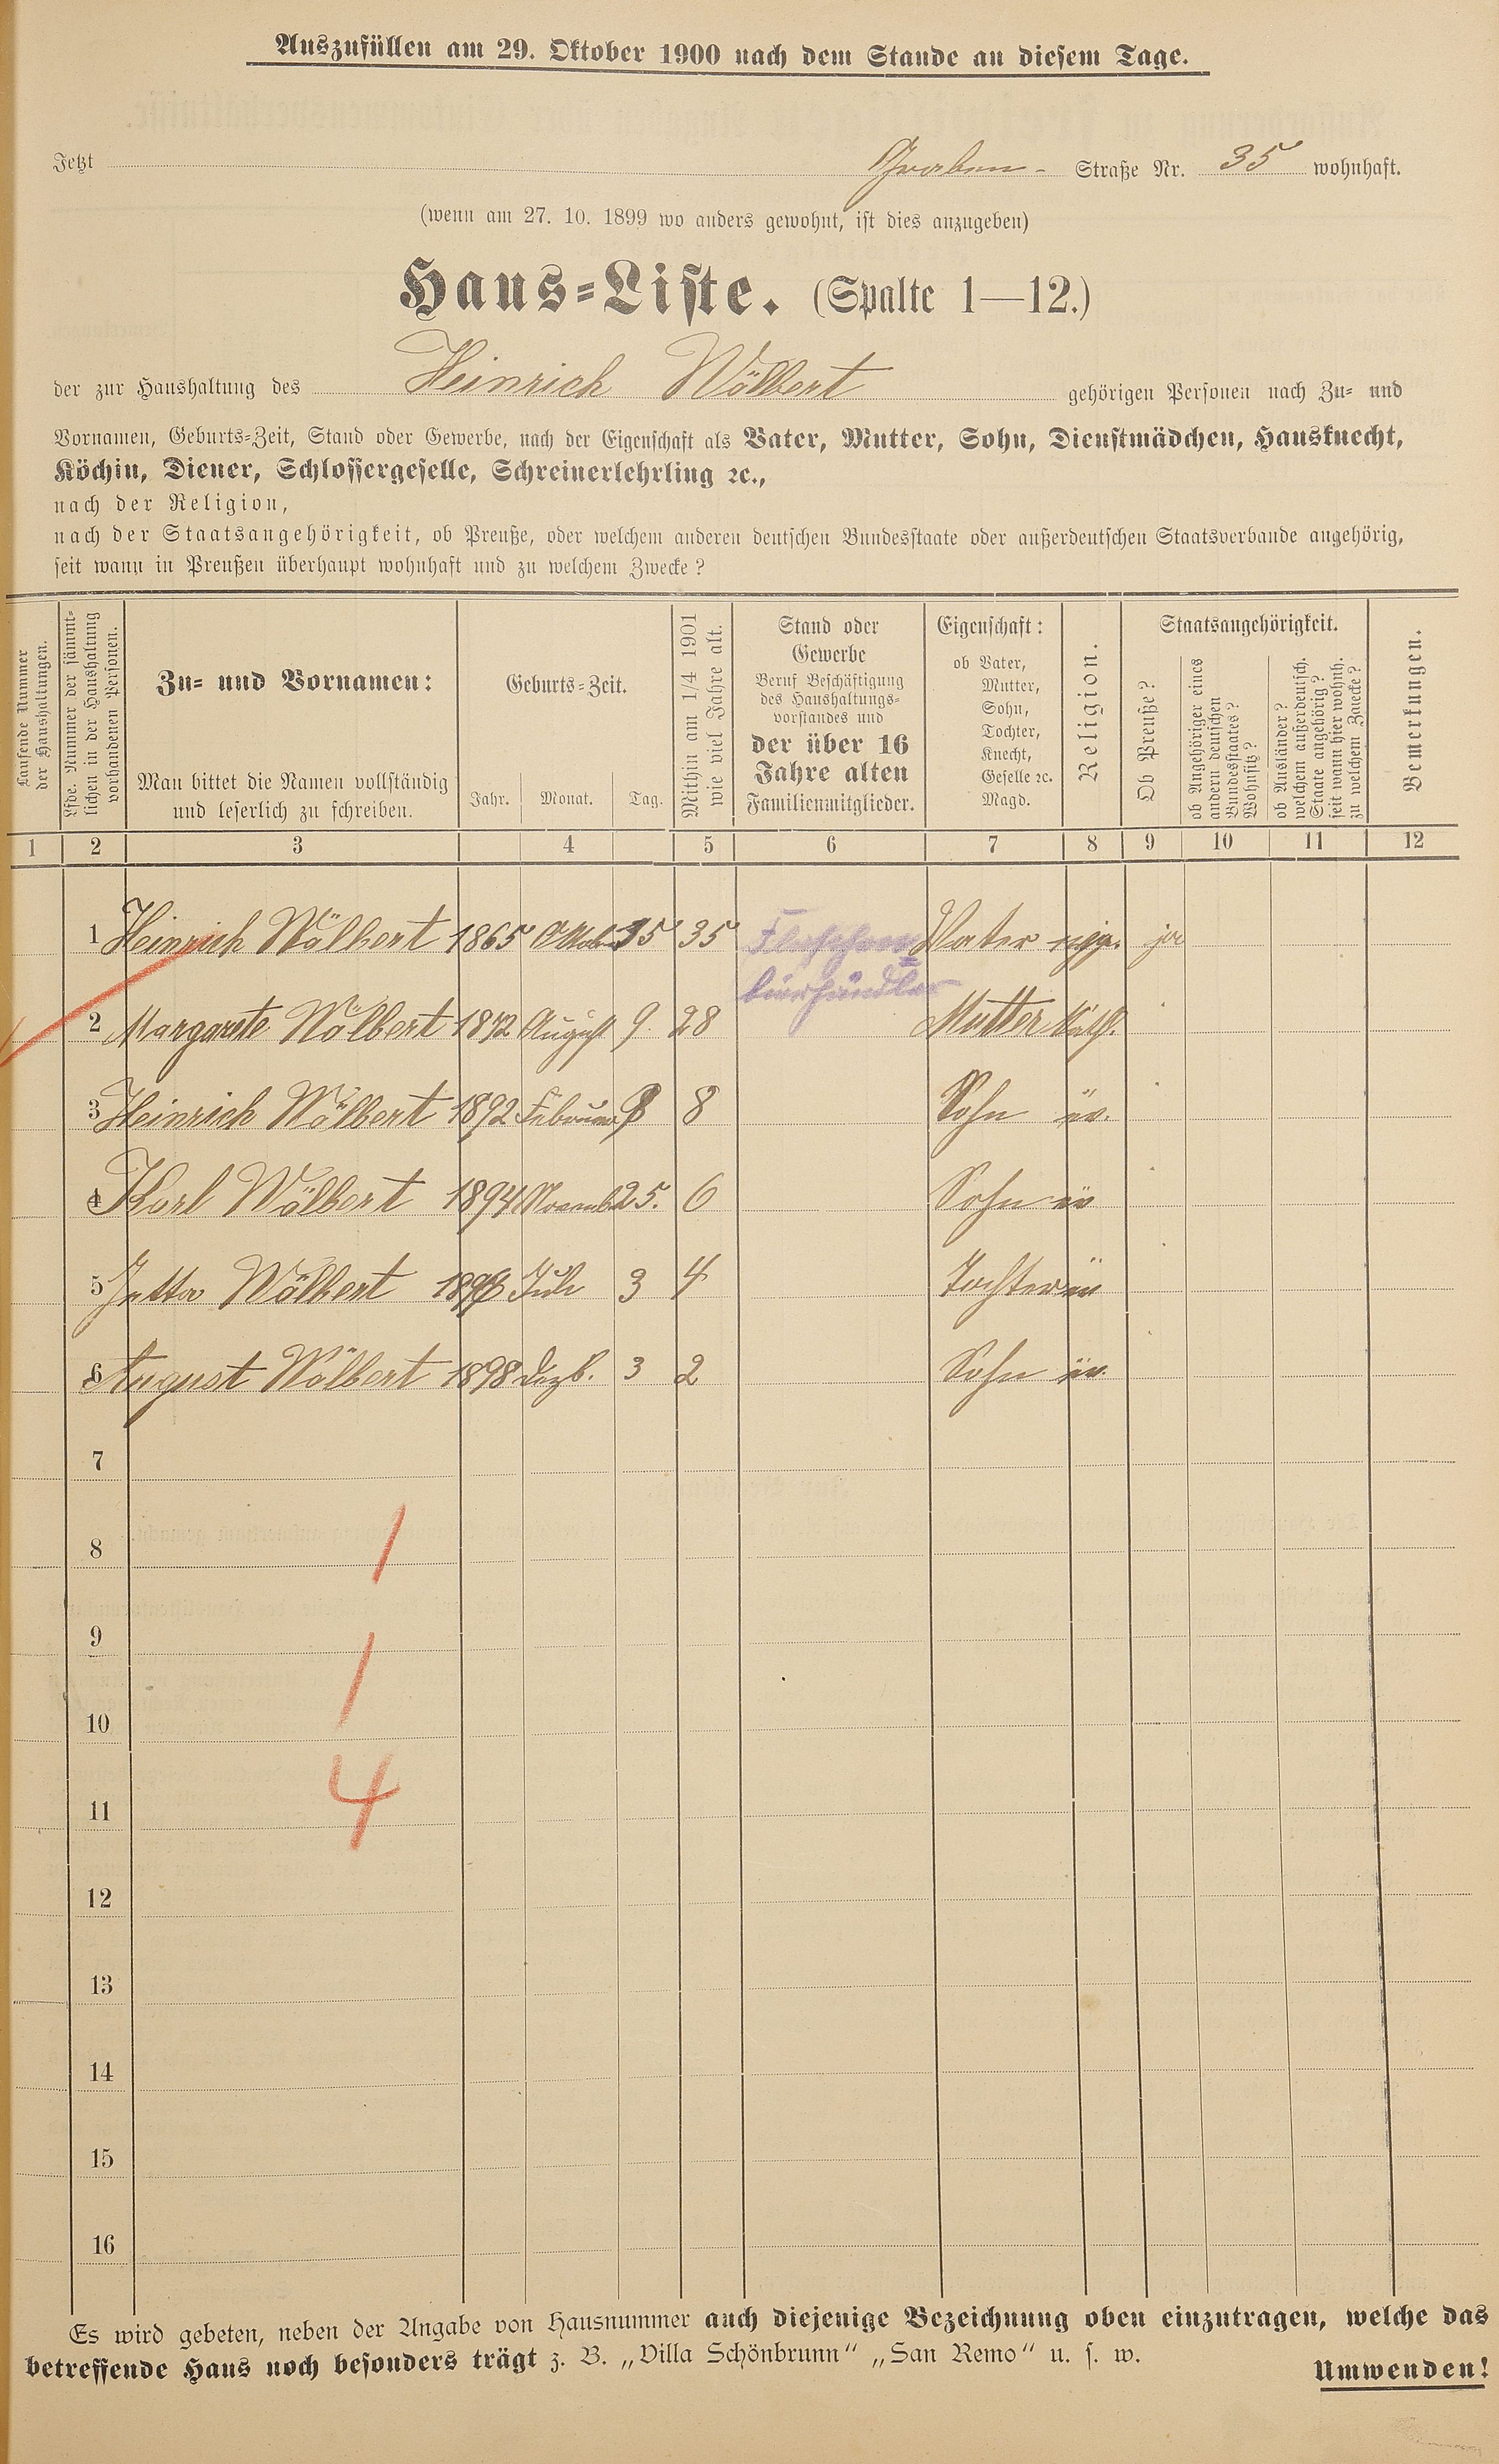 Auszufüllen am 29. Oktober 1900 nach dem Stande an diesem Tage.
Jetzt Graben- Straße Nr. 35 wohnhaft.
(wenn am 27. 10. 1899 wo anders gewohnt, ist dies anzugeben)
Haus-Liste. (Spalte 1—12.)
der zur Haushaltung des Heinrich Wölbert gehörigen Personen nach Zu- und
Vornamen, Geburts-Zeit, Stand oder Gewerbe, nach der Eigenschaft als Vater, Mutter, Sohn, Dienstmädchen, Hausknecht,
Köchin, Diener, Schlossergeselle, Schreinerlehrling ꝛc.,
nach der Religion,
nach der Staatsangehörigkeit, ob Preuße, oder welchem anderen deutschen Bundesstaate oder außerdeutschen Staatsverbande angehörig,
seit wann in Preußen überhaupt wohnhaft und zu welchem Zwecke?
Laufende Nummer
der Haushaltungen.
Lfde. Nummer der sämmt-
lichen in der Haushaltung
vorhandenen Personen.
Zu- und Vornamen:
Man bittet die Namen vollständig
und leserlich zu schreiben.
Geburts-Zeit.
Jahr. Monat. Tag.
Mithin am 1/4 1901
wie viel Jahre alt.
Stand oder
Gewerbe
Beruf Beschäftigung
des Haushaltungs-
vorstandes und
der über 16
Jahre alten
Familienmitglieder.
Eigenschaft:
ob Vater,
Mutter,
Sohn,
Tochter,
Knecht,
Geselle ꝛc.
Magd.
Religion.
Staatsangehörigkeit.
Ob Preuße?
ob Angehöriger eines
andern deutschen
Bundesstaates?
Wohnsitz?
ob Ausländer?
welchem außerdeutsch.
Staate angehörig?
seit wann hier wohnh.
zu welchem Zwecke?
Bemerkungen.
1 2 3 4 5 6 7 8 9 10 11 12
1 Heinrich Wölbert 1865 Oktob 15 35 Flaschen Vater ja
bierhändler
2 Margarete Wölbert 1872 August 9. 28 Mutter Kath.
3 Heinrich Wölbert 1892 Februar 8 8 Sohn ev.
4 Karl Wölbert 1894 Novemb 25. 6 Sohn ev
5 Jetta Wölbert 1896 Juli 3 4 Tochter ev
6 August Wölbert 1898 Dezb. 3 2 Sohn ev.
7
8
1
9
1
10
11
4
12
13
14
15
16
Es wird gebeten, neben der Angabe von Hausnummer auch diejenige Bezeichnung oben einzutragen, welche das
betreffende Haus noch besonders trägt z. B. „Villa Schönbrunn“ „San Remo“ u. s. w.
Umwenden!